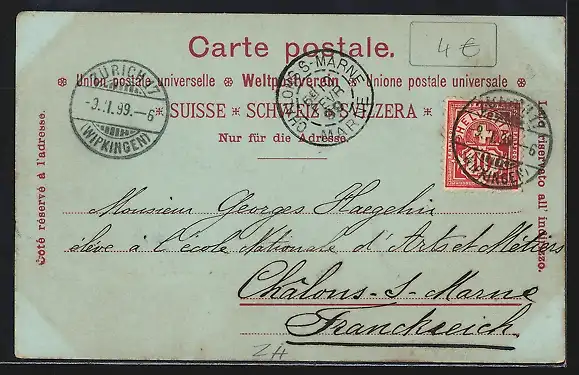 4 €
Carte postale.
Union postale universelle Weltpostverein Unione postale universale
SUISSE SCHWEIZ SVIZZERA
Nur für die Adresse.
Côté réservé à l'adresse.
Lato riservato all'indirizzo.
ZÜRICH 17
-9.II.99.-6
(WIPKINGEN)
CHALONS-S-MARNE
MARNE
HELVETIA
10
Monsieur Georges Haegelin
élève à l'école Nationale d'Arts et Métiers
Châlons-s-Marne
Franckreich.